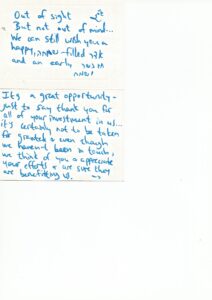 Out of sight
But not out of mind...
We can still wish you a
happy, שמחה-filled אדר
and an early
שמח
It's a great opportunity -
just to say thank you for
all of your investment in us...
it's certainly not to be taken
for granted & even though
we haven't been in touch,
we think of you & appreciate
your efforts & are sure they
are benefitting us.